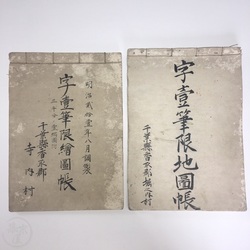 明治貳拾壹年八月調製
字壹筆限繪圖帳
千葉縣香取郡
寺内村
字壹筆限地圖帳
千葉縣香取郡